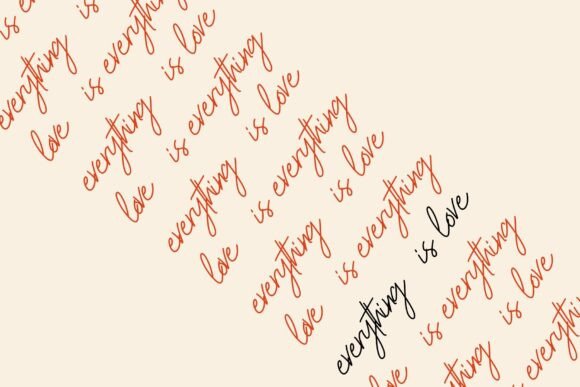 is
everything is
love is everything
everything is love
love is everything
everything is love
love is everything
everything is love
love is everything
everything is love
love is everything
everything is love
is everything